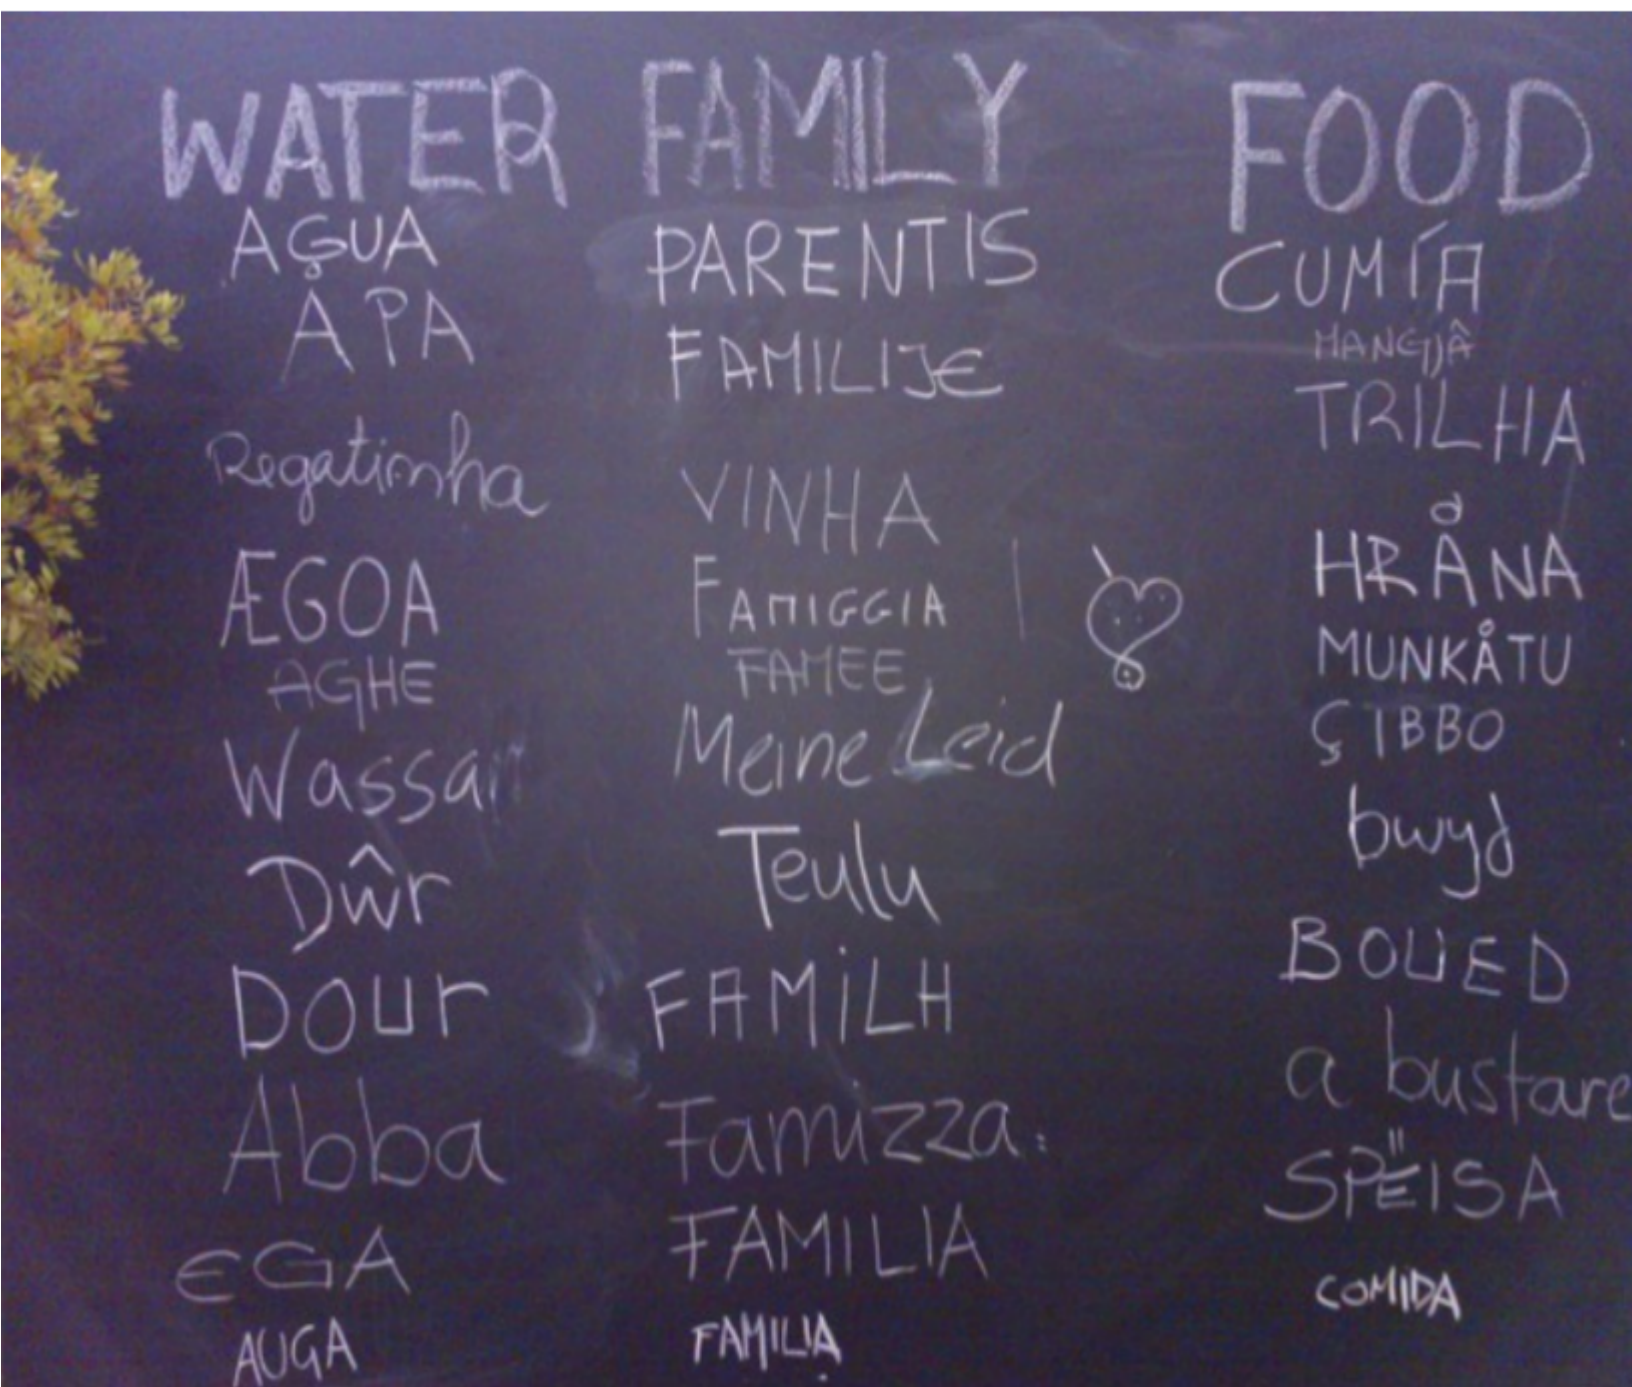 WATER
AGUA
APA
Regatinha
ÆGOA
AGHE
Wassar
Dŵr
Dour
Abba
EGA
AUGA
FAMILY
PARENTIS
FAMILIJE
VINHA
FAMIGGIA
FAMEE
Meine Leid
Teulu
FAMILH
Famizza.
FAMILIA
FAMILIA
FOOD
CUMÍA
MANGJÂ
TRILHA
HRÅNA
MUNKÅTU
ÇIBBO
bwyd
BOUED
a bustare
SPËISA
COMIDA